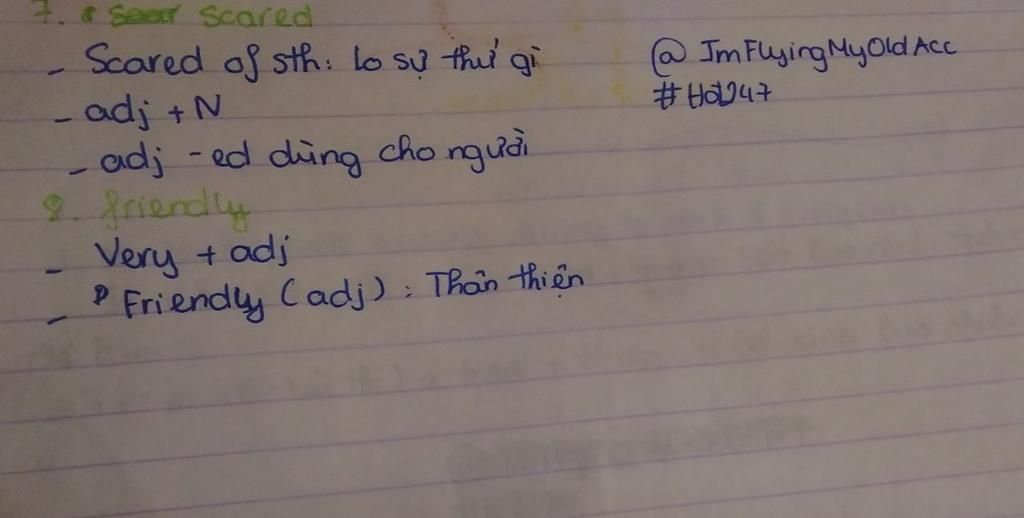 7. scared
- Scared of sth: lo sợ thứ gì
@JmFlyingMyOldAcc
- adj + N
#HOU247
- adj -ed dùng cho người
8. friendly
- Very + adj
- Friendly (adj): Thân thiện